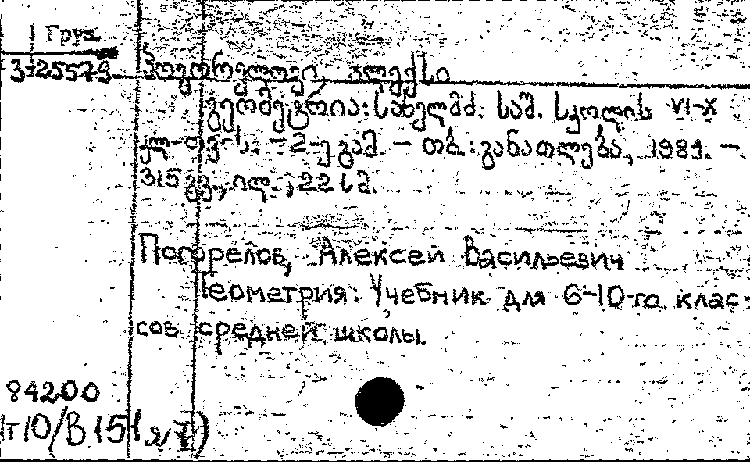 Груз.
3-25579
პოგორელოვი, ალექსი
გეომეტრია: სახელმძ. საშ. სკოლის VI-X
კლ-თვ-ს. - 2-ე გამ. - თბ.: განათლება, 1989. -
315 გვ., ილ.; 22 სმ.
Погорелов, Алексей Васильевич
Геометрия: Учебник для 6-10-го клас-
сов средней школы.
84200